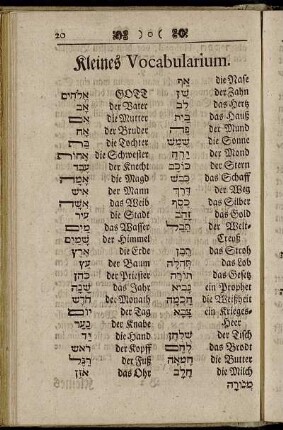 20 ( o )
Kleines Vocabularium.
אלהים GOTT
אב der Vater
אם die Mutter
אח der Bruder
בת die Tochter
אחות die Schwester
עבד der Knecht
אמה die Magd
איש der Mann
אשה das Weib
עיר die Stadt
מים das Wasser
שמים der Himmel
ארץ die Erde
עץ der Baum
כהן der Priester
שנה das Jahr
חדש der Monath
יום der Tag
נער der Knabe
יד die Hand
ראש der Kopff
רגל der Fuß
אזן das Ohr
אף die Nase
שן der Zahn
לב das Hertz
בית das Hauß
פה der Mund
שמש die Sonne
ירח der Mond
כוכב der Stern
כבש das Schaff
דרך der Weg
כסף das Silber
זהב das Gold
תבל der Welt-
Creyß
תבן das Stroh
תהלה das Lob
תורה das Gesetz
נביא ein Prophet
חכמה die Weißheit
צבא ein Krieges-
Heer
שלחן der Tisch
לחם das Brodt
חמאה die Butter
חלב die Milch
מנורה